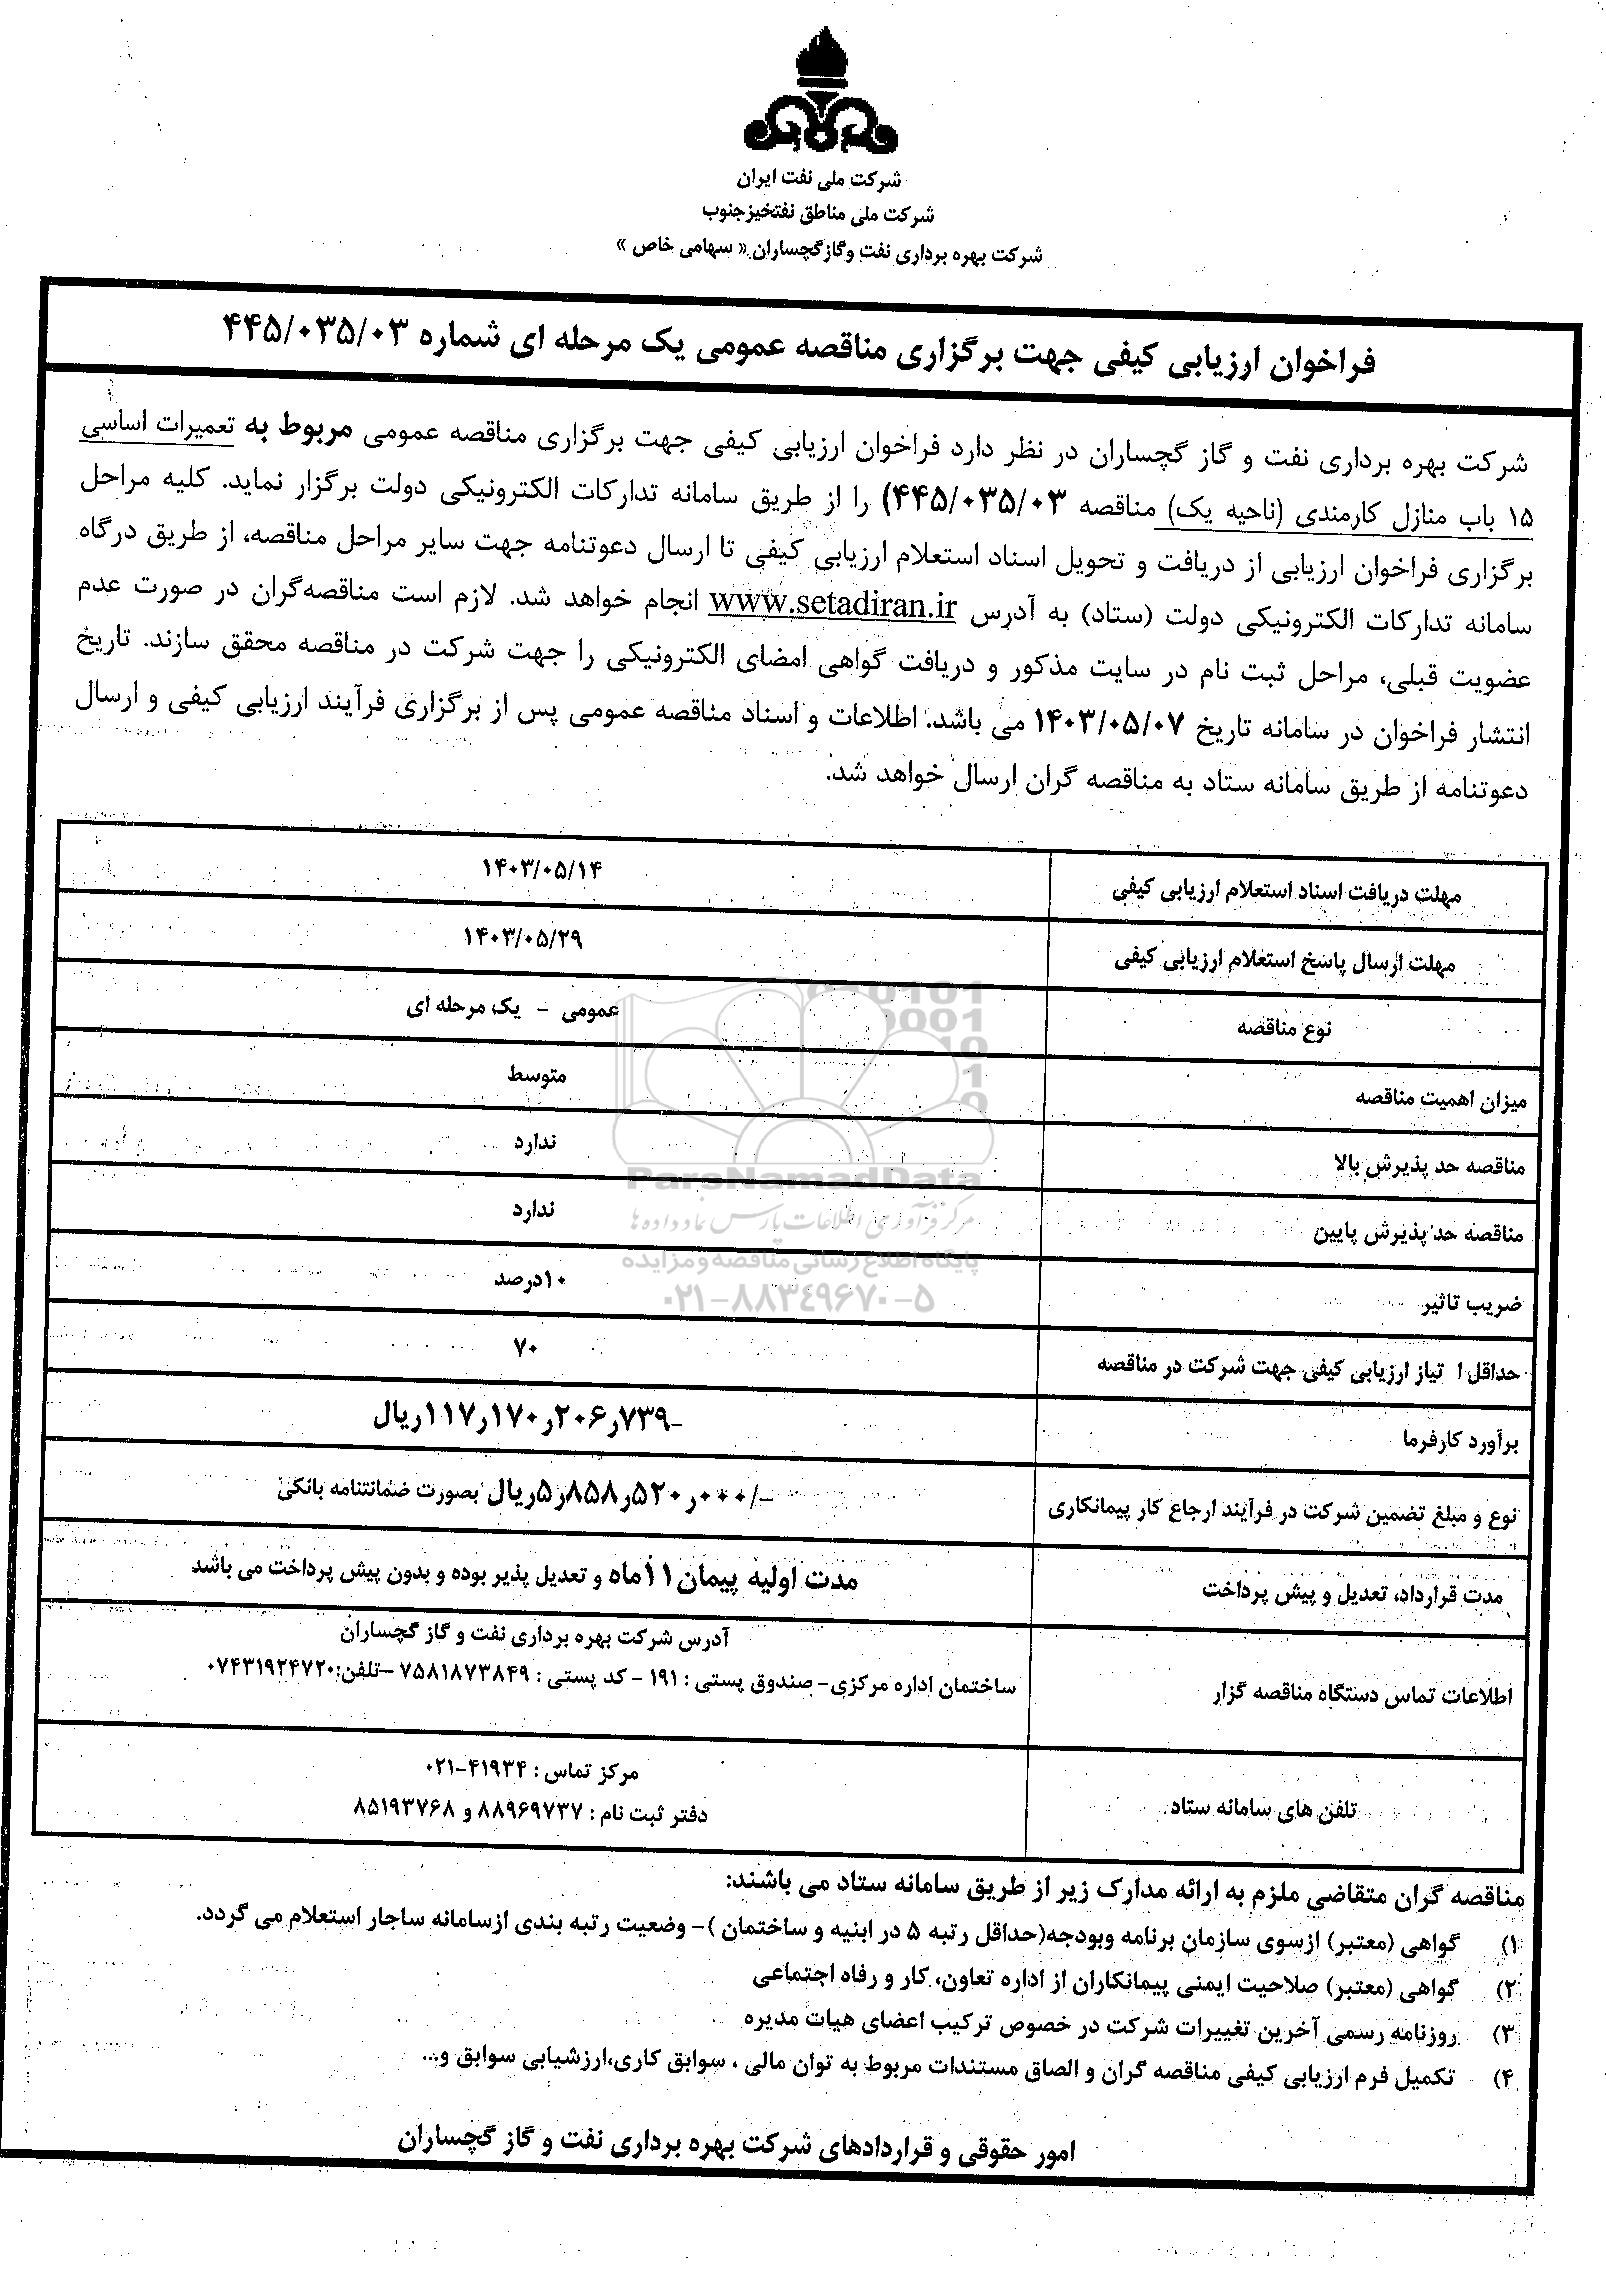 شرکت ملی نفت ایران
شرکت ملی مناطق نفتخیزجنوب
شرکت بهره برداری نفت وگازگچساران « سهامی خاص »
فراخوان ارزیابی کیفی جهت برگزاری مناقصه عمومی یک مرحله ای شماره ۴۴۵/۰۳۵/۰۳
شرکت بهره برداری نفت و گاز گچساران در نظر دارد فراخوان ارزیابی کیفی جهت برگزاری مناقصه عمومی مربوط به تعمیرات اساسی
۱۵ باب منازل کارمندی (ناحیه یک) مناقصه ۴۴۵/۰۳۵/۰۳) را از طریق سامانه تدارکات الکترونیکی دولت برگزار نماید. کلیه مراحل
برگزاری فراخوان ارزیابی از دریافت و تحویل اسناد استعلام ارزیابی کیفی تا ارسال دعوتنامه جهت سایر مراحل مناقصه، از طریق درگاه
سامانه تدارکات الکترونیکی دولت (ستاد) به آدرس www.setadiran.ir انجام خواهد شد. لازم است مناقصه‌گران در صورت عدم
عضویت قبلی، مراحل ثبت نام در سایت مذکور و دریافت گواهی امضای الکترونیکی را جهت شرکت در مناقصه محقق سازند. تاریخ
انتشار فراخوان در سامانه تاریخ ۱۴۰۳/۰۵/۰۷ می باشد. اطلاعات و اسناد مناقصه عمومی پس از برگزاری فرآیند ارزیابی کیفی و ارسال
دعوتنامه از طریق سامانه ستاد به مناقصه گران ارسال خواهد شد.
مهلت دریافت اسناد استعلام ارزیابی کیفی ۱۴۰۳/۰۵/۱۴
مهلت ارسال پاسخ استعلام ارزیابی کیفی ۱۴۰۳/۰۵/۲۹
نوع مناقصه عمومی - یک مرحله ای
میزان اهمیت مناقصه متوسط
مناقصه حد پذیرش بالا ندارد
مناقصه حد پذیرش پایین ندارد
ضریب تاثیر ۱۰درصد
حداقل ا تیاز ارزیابی کیفی جهت شرکت در مناقصه ۷۰
برآورد کارفرما -۱۱۷ر۱۷۰ر۲۰۶ر۷۳۹ریال
نوع و مبلغ تضمین شرکت در فرآیند ارجاع کار پیمانکاری -/۵ر۸۵۸ر۵۲۰ر۰۰۰ریال بصورت ضمانتنامه بانکی
مدت قرارداد، تعدیل و پیش پرداخت مدت اولیه پیمان ۱۱ماه و تعدیل پذیر بوده و بدون پیش پرداخت می باشد
اطلاعات تماس دستگاه مناقصه گزار آدرس شرکت بهره برداری نفت و گاز گچساران
ساختمان اداره مرکزی- صندوق پستی : ۱۹۱ - کد پستی : ۷۵۸۱۸۷۳۸۴۹ –تلفن:۰۷۴۳۱۹۲۴۷۲۰
تلفن های سامانه ستاد مرکز تماس : ۴۱۹۳۴-۰۲۱
دفتر ثبت نام : ۸۸۹۶۹۷۳۷ و ۸۵۱۹۳۷۶۸
مناقصه گران متقاضی ملزم به ارائه مدارک زیر از طریق سامانه ستاد می باشند:
۱) گواهی (معتبر) ازسوی سازمان برنامه وبودجه(حداقل رتبه ۵ در ابنیه و ساختمان )- وضعیت رتبه بندی ازسامانه ساجار استعلام می گردد.
۲) گواهی (معتبر) صلاحیت ایمنی پیمانکاران از اداره تعاون، کار و رفاه اجتماعی
۳) روزنامه رسمی آخرین تغییرات شرکت در خصوص ترکیب اعضای هیات مدیره
۴) تکمیل فرم ارزیابی کیفی مناقصه گران و الصاق مستندات مربوط به توان مالی ، سوابق کاری،ارزشیابی سوابق و...
امور حقوقی و قراردادهای شرکت بهره برداری نفت و گاز گچساران
ParsNamadData
مرکز فرآوری اطلاعات پارس نماد داده ها
پایگاه اطلاع رسانی مناقصه و مزایده
۰۲۱-۸۸۳۴۹۶۷۰-۵